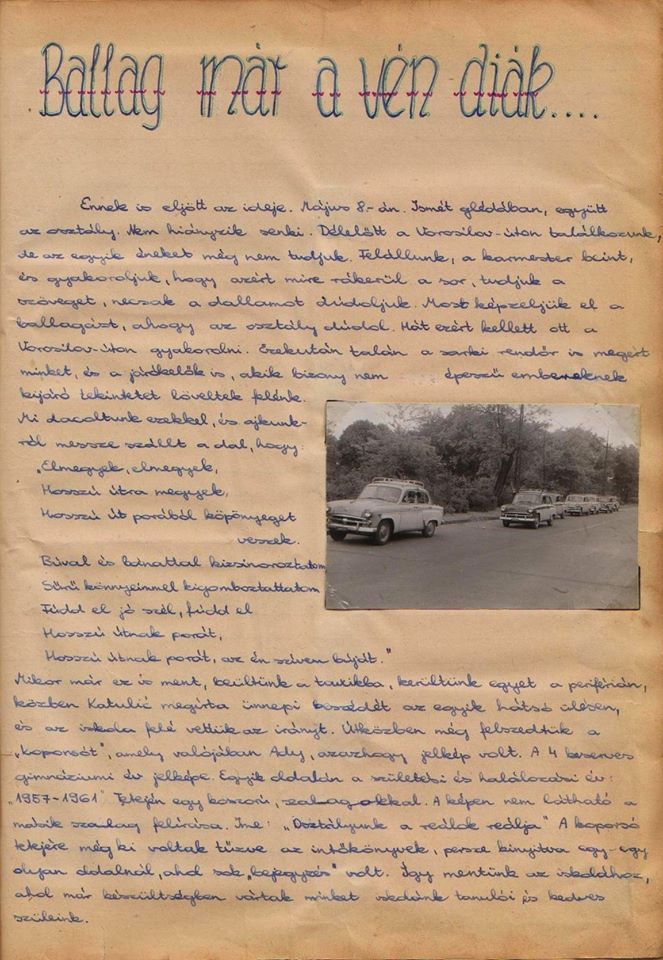 Ballag már a vén diák....
Ennek is eljött az ideje. Május 8.-án. Ismét glédában, együtt
az osztály. Nem hiányzik senki. Délelőtt a Vorosilov-úton találkozunk,
de az egyik éneket még nem tudjuk. Felállunk, a karmester beint,
és gyakoroljuk, hogy azért mire rákerül a sor, tudjuk a
szöveget, necsak a dallamot dúdoljuk. Most képzeljük el a
ballagást, ahogy az osztály dúdol. Hát ezért kellett ott a
Vorosilov-úton gyakorolni. Ezekután talán a sarki rendőr is megért
minket, és a járókelők is, akik bizony nem épeszű embereknek
kijáró tekintetet löveltek felénk.
Mi dacoltunk ezekkel, és ajkunk-
ról messze szállt a dal, hogy:
„Elmegyek, elmegyek,
Hosszú útra megyek,
Hosszú út porából köpönyeget
veszek.
Búval és bánattal kizsinoroztatom
Sűrű könnyeimmel kigomboztattatom
Fúdd el jó szél, fúdd el
Hosszú útnak porát,
Hosszú útnak porát, az én szívem búját."
Mikor már ez is ment, beültünk a taxikba, kerültünk egyet a periférián,
közben Katulić megírta ünnepi beszédét az egyik hátsó ülésen,
és az iskola felé vettük az irányt. Útközben még felszedtük a
„koporsót", amely valójában Ady, azazhogy jelkép volt. A 4 keserves
gimnáziumi év jelképe. Egyik oldalán a születési és halálozási év:
„1957-1961" Tetején egy koszorú, szalagokkal. A képen nem látható a
másik szalag felírása. Íme: „Osztályunk a reálok reálja" A koporsó
tetejére még ki voltak tűzve az intőkönyvek, persze kinyitva egy-egy
olyan oldalnál, ahol sok „bejegyzés" volt. Így mentünk az iskolához,
ahol már készültségben vártak minket iskolánk tanulói és kedves
szüleink.